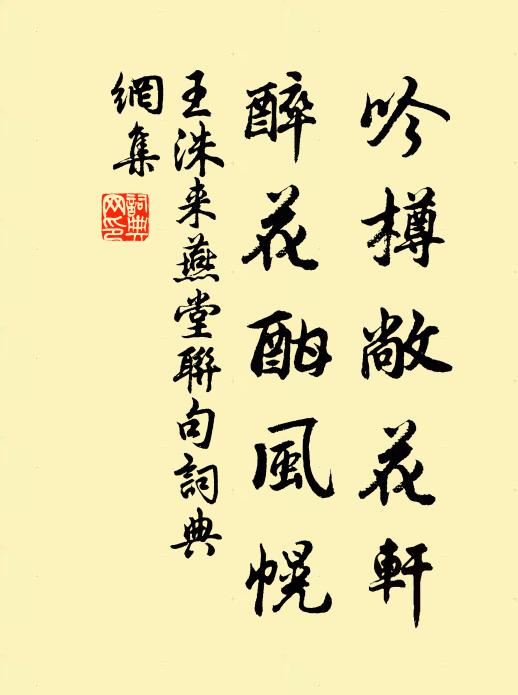 吟樽敞花軒
醉花酣風幌
王洙来燕堂聯句詞典
網集
詞典
网印